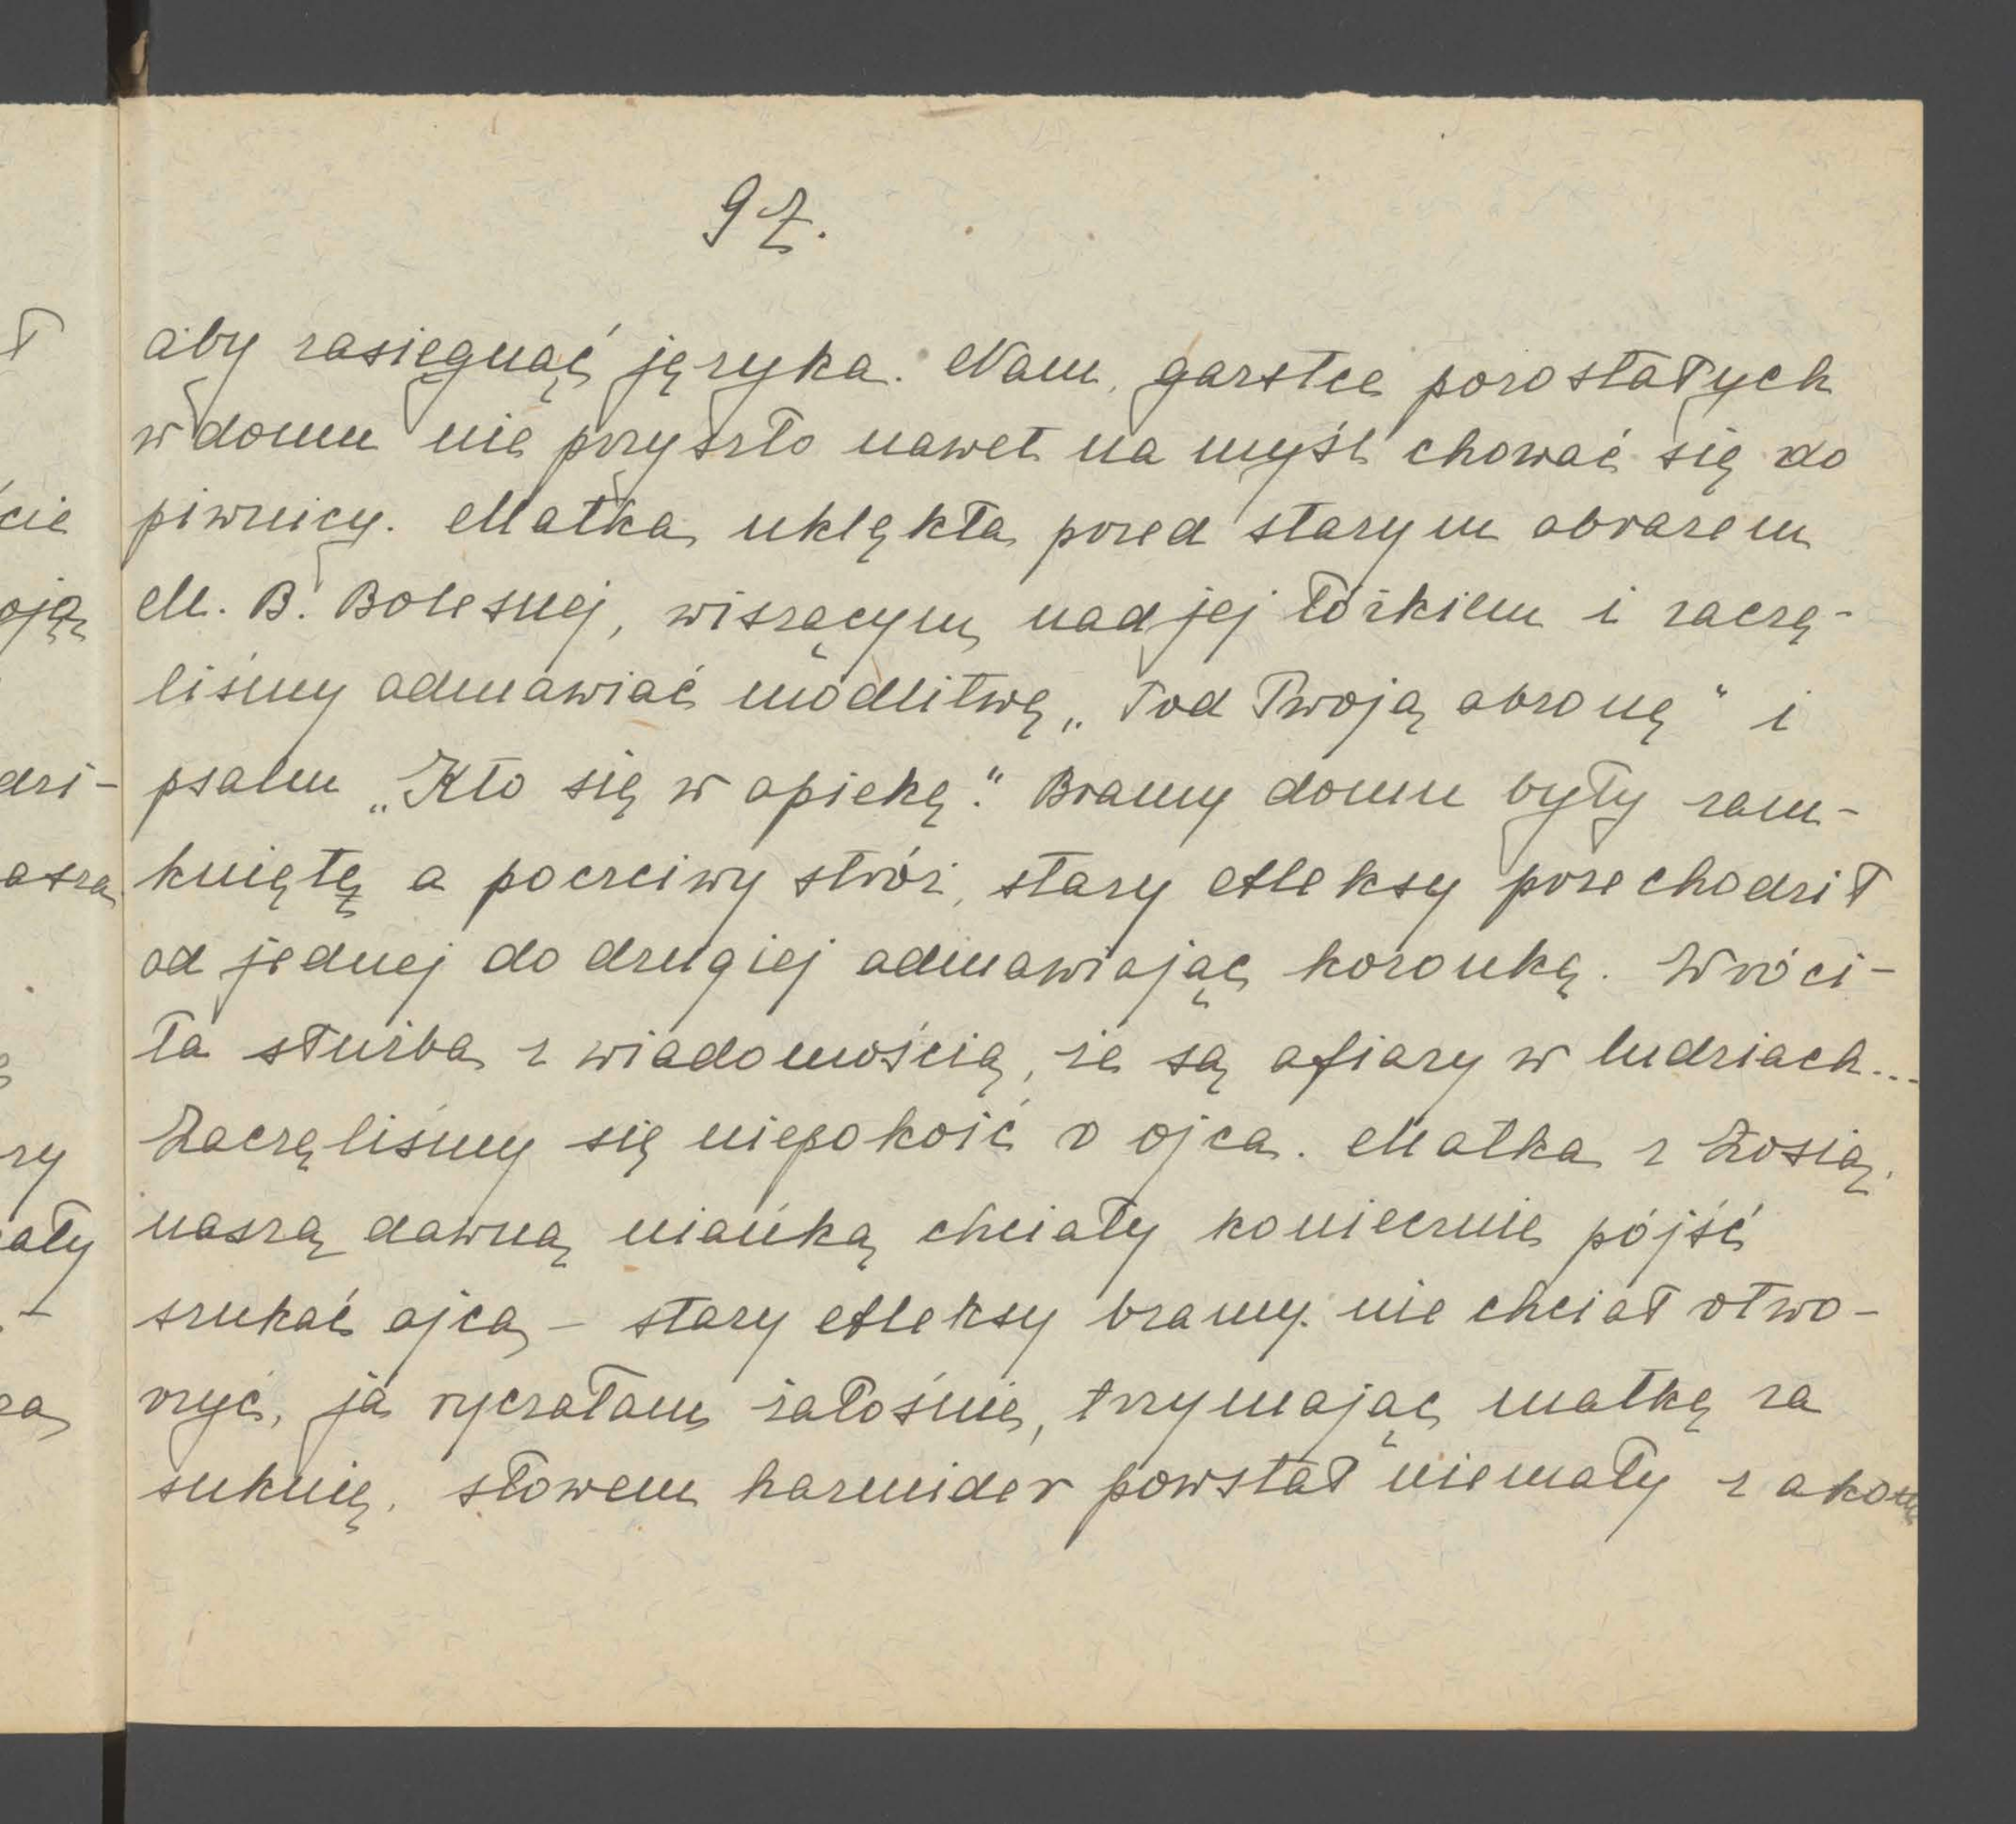 97.
aby zasięgnąć języka. Nam, garstce pozostałych
w domu nie przyszło nawet na myśl chować się do
piwnicy. Matka uklękła przed starym obrazem
M. B. Bolesnej, wiszącym nad jej łóżkiem i zaczę-
liśmy odmawiać modlitwę „Pod Twoją obronę" i
psalm „Kto się w opiekę". Bramy domu były zam-
knięte a poczciwy stróż, stary Aleksy przechodził
od jednej do drugiej odmawiając koronkę. Wróci-
ła służba z wiadomością, że są ofiary w ludziach...
Zaczęliśmy się niepokoić o ojca. Matka z Zosią,
naszą dawną niańką chciały koniecznie pójść
szukać ojca – stary Aleksy bramy nie chciał otwo-
rzyć, ja ryczałam żałośnie, trzymając matkę za
suknię, słowem harmider powstał niemały